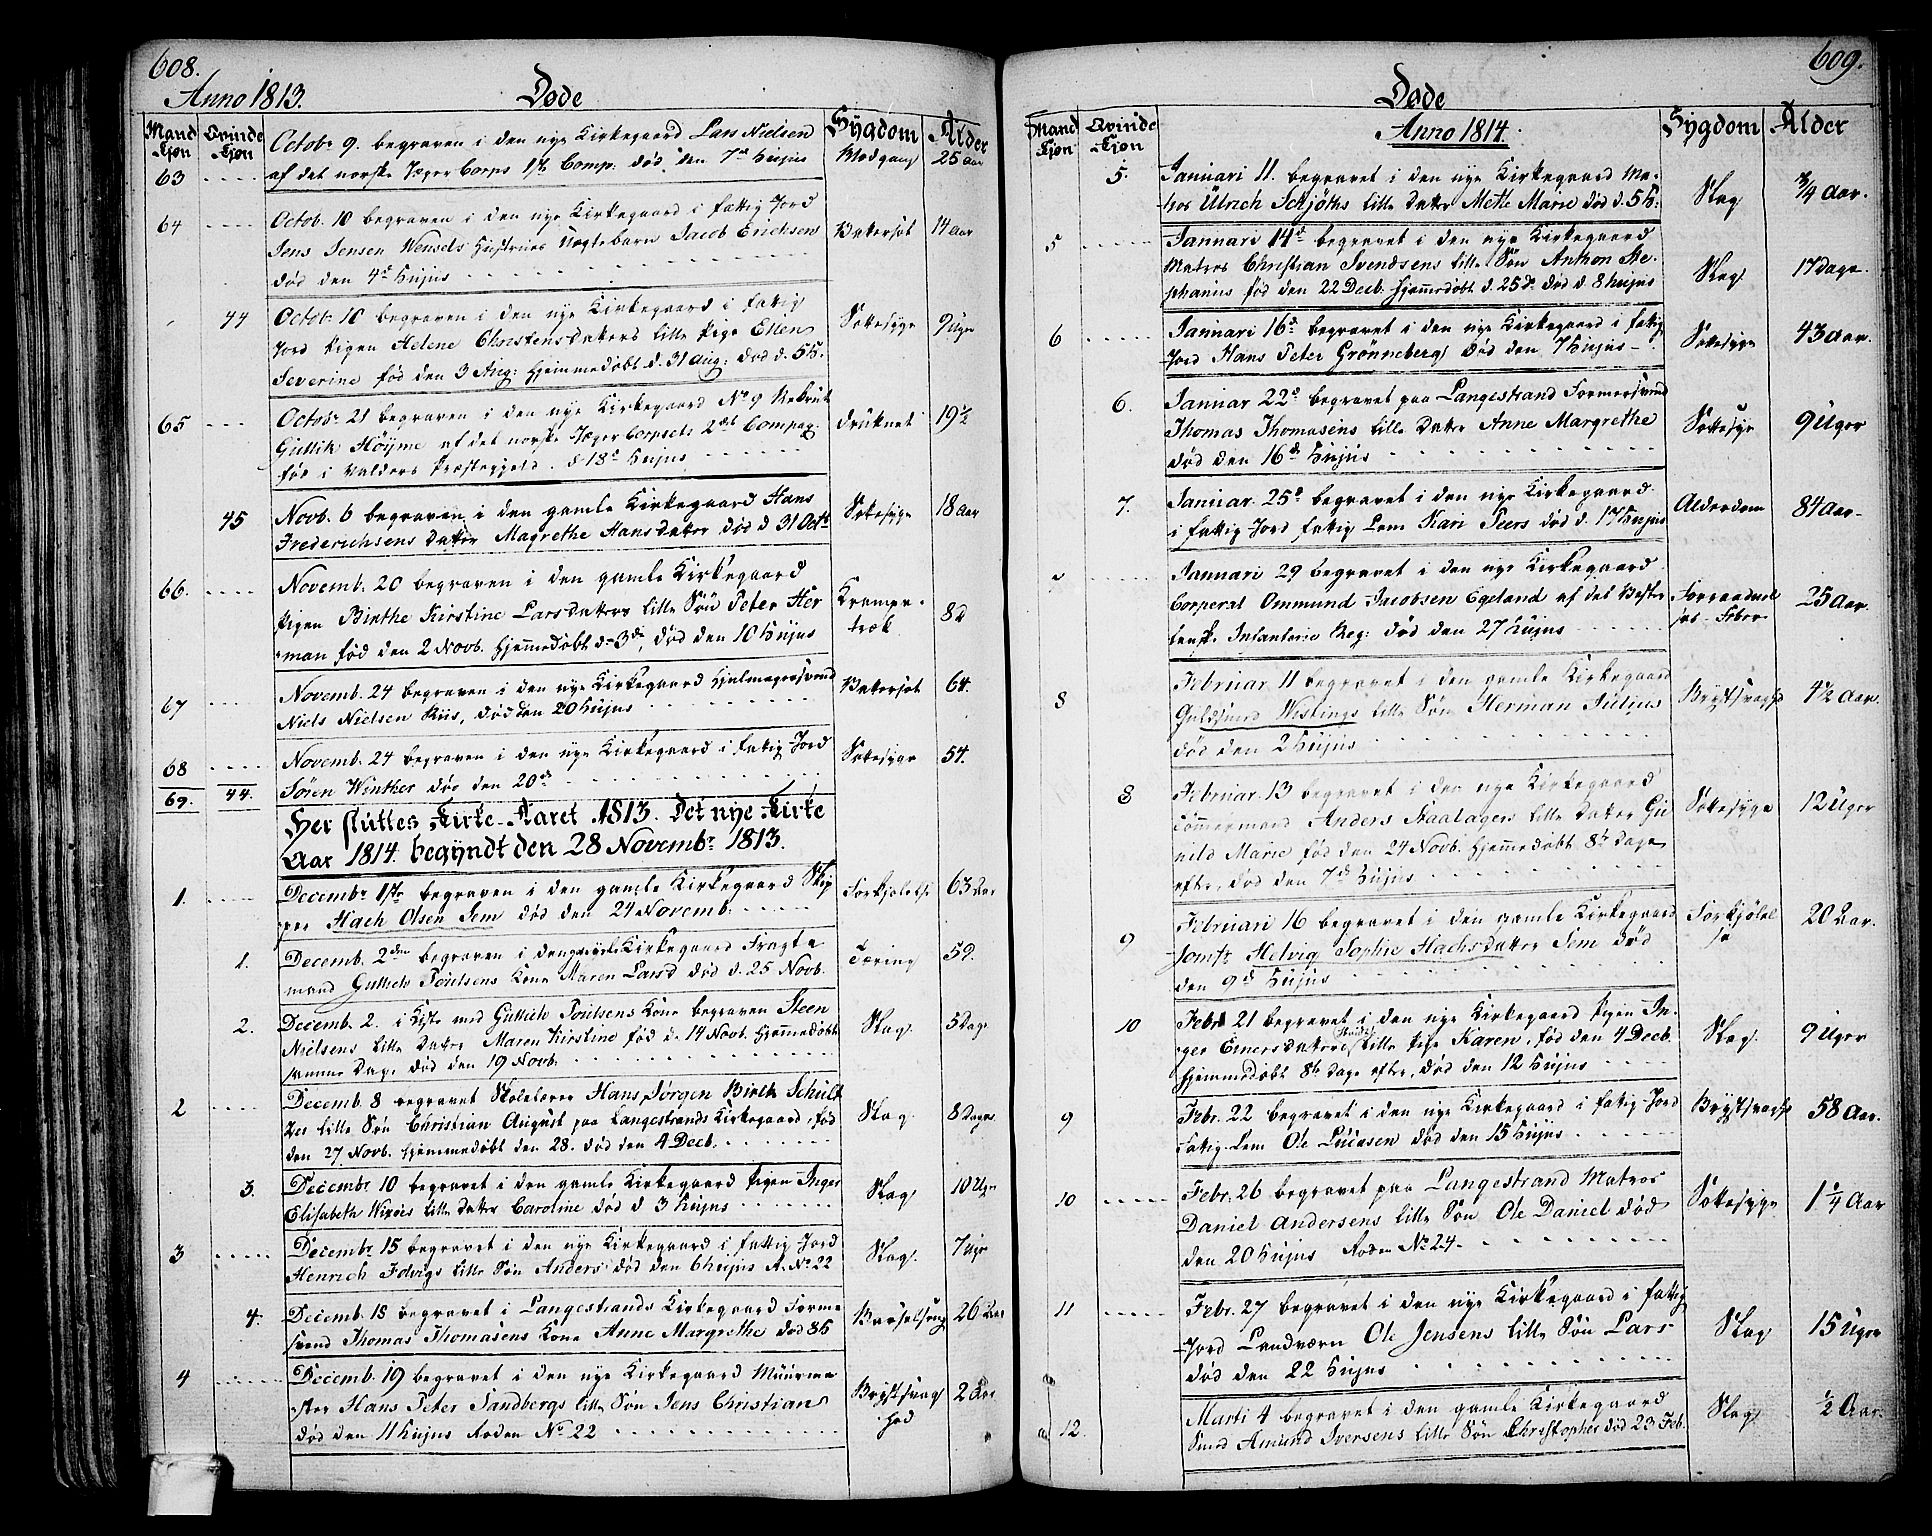 608.
Anno 1813. Døde
Mand Kjøn Qvinde Kjøn Sygdom Alder
63 Octobr 9. begraven i den nye Kirkegaard Lars Nielsen Modgang 25 Aar
af det norske Jæger Corps 1ste Comp. død den 7d hujus
64 Octob. 10 begraven i den nye Kirkegaard i fattig Jord
Jens Jensen Hustrues Uægtebarn Jacob Erichsen Vatersot 14 Aar
død den 4d hujus
44 Octob. 10 begraven i den nye Kirkegaard i fattig
Jord Pigen Helene Christensdatters lille Pige Ellen Sottesyge 9 Uger
Severine fød den 3 Aug: hjemmedøbt d. 31 Aug: død d. 5 H.
65 Octobr 21 begraven i den nye Kirkegaard No 9 Rekrut druknet 19 1/2
Guttik Höyme af det norske Jæger Corpsets 2det Compag:
fød i Valders Præstegjeld. d 18d hujus
45 Novb. 6 begraven i den gamle Kirkegaard Hans Sottesyge 18 Aar
Frederichsens datter Magrethe Hansdatter død d 31 Octb
66. Novemb. 20 begraven i den gamle Kirkegaard
Pigen Birthe Kirstine Larsdatters lille Søn Peter Her Krampe- 8 d
man fød den 2 Novb. hjemmedøbt d 3de, død den 10 hujus træk
67 Novemb. 24 begraven i den nye Kirkegaard Hjulmagersvend Vatersot 64.
Niels Nielsen Riis, død den 20 hujus
68 Novemb. 24 begraven i den nye Kirkegaard i fattig Jord Sottesyge 54.
Søren Winther død den 20de
69. 44.
Her sluttes Kirke-Aaret 1813. Det nye Kirke
Aar 1814. begyndt den 28 Novembr 1813.
1. Decembr 1ste begraven i den gamle Kirkegaard Skip Forkjølelse 63 Aar
per Hach Olsen Sem død den 24 Novemb.
1. Decemb. 2den begraven i den gamle Kirkegaard Fragte Tæring 59.
mand Guttich Poulsens Kone Maren Larsd død d. 25 Novb.
2. Decemb. 2. i Kiste med Guttich Poulsens Kone begraven Steen Slag. 5 Dage
Nielsens lille datter Maren Kirstine fød d. 14 Novb. hjemmedøbt
samme Dag, død den 19 Novb.
2 Decemb. 8 begravet Skolelærer Hans Jørgen Birch Schult
zes lille Søn Christian August paa Langestrands Kirkegaard, fød Slag 8 Dage
den 27 Novb. hjemmedøbt den 28. død den 4 Decb.
3. Decembr. 10 begravet i den gamle Kirkegaard Pigen Inger Slag 10 Uger
Elisabeth lille datter Caroline død d 3 hujus
3 Decembr. 15 begravet i den nye Kirkegaard i fattig Jord Slag. 7 Uger
Henrich lille Søn Anders død den 6 hujus R. No 22
4. Decemb. 18 begravet i Langestrands Kirkegaard Forme Barselseng 26 Aar
svend Thomas Thomasens Kone Anne Margrethe død 8 H
4 Decemb. 19 begravet i den nye Kirkegaard Muurme
ster Hans Peter Sandbergs lille Søn Jens Christian Brystsvag 2 Aar
død den 11 hujus Roden No 22 hed
609.
Døde
Mand Kjøn Qvinde Kjøn Anno 1814. Sygdom Alder
5. Januari 11. begravet i den nye Kirkegaard Ma-
tros Ulrich Schjöths lille datter Mette Marie død d. 5 H: Slag 3/4 Aar.
5 Januari 14d begravet i den nye Kirkegaard
Matros Christian Svendsens lille Søn Anthon Ste- Slag 17 dage.
phanius fød den 22 Decb. hjemmedøbt d. 25d. død d. 8 hujus
6 Januari 16d begravet i den nye Kirkegaard i fattig Sottesyge 43 Aar.
Jord Hans Peter Grönneberg død den 7 hujus
6. Januar 22d begravet paa Langestrand Formersvend
Thomas Thomasens lille datter Anne Margrethe Sottesyge 9 Uger
død den 16d hujus
7. Januar. 25d begravet i den nye Kirkegaard Alderdom 84 Aar
i fattig Jord fattig Lem Kari Peers død d. 17 hujus
7 Januari 29 begravet i den nye Kirkegaard
Corporal Ommund Jacobsen Egeland af det Vester 25 Aar.
lensk. Infanterie Reg: død den 27 hujus Feber
8 Februar 11 begravet i den gamle Kirkegaard Brystsvaghed 4 1/2 Aar.
Guldsmed Wistings lille Søn Herman Julius
død den 2 hujus
8 Februar. 13 begravet i den nye Kirkegaard Sottesyge 12 Uger
Tömmermand Anders Staalagers lille datter Gu
nild Marie fød den 24 Novb. hjemmedøbt 8te Dage
efter, død den 7d hujus
9 Februari 16 begravet i den gamle Kirkegaard Forkjølel 20 Aar.
Jomfr. Helvig Sophie Hachsdatter Sem død se
den 9d hujus
10 Febr 21 begravet i den nye Kirkegaard Pigen In-
ger Emersdatters lille Pige Karen, fød den 4 Decb. Slag. 9 Uger
hjemmedøbt 8te Dage efter, død den 12 hujus
9 Febr. 22 begravet i den nye Kirkegaard i fattig Jord Brystsvaghed 58 Aar.
Fattig-Lem Ole Lucasen død den 15 hujus
10 Febr. 26 begravet paa Langestrand Matros Sottesyge 1 1/4 Aar
Daniel Andersens lille Søn Ole Daniel død
den 20 hujus Roden No 24.
11 Febr. 27 begravet i den nye Kirkegaard i fattig
Jord Landværn Ole Jensens lille Søn Lars Slag 15 Uger
død den 22 hujus
12. Marti 4 begravet i den gamle Kirkegaard Slag 1/2 Aar.
Smed Amund Iversens lille Søn Christopher død 23 Feb.